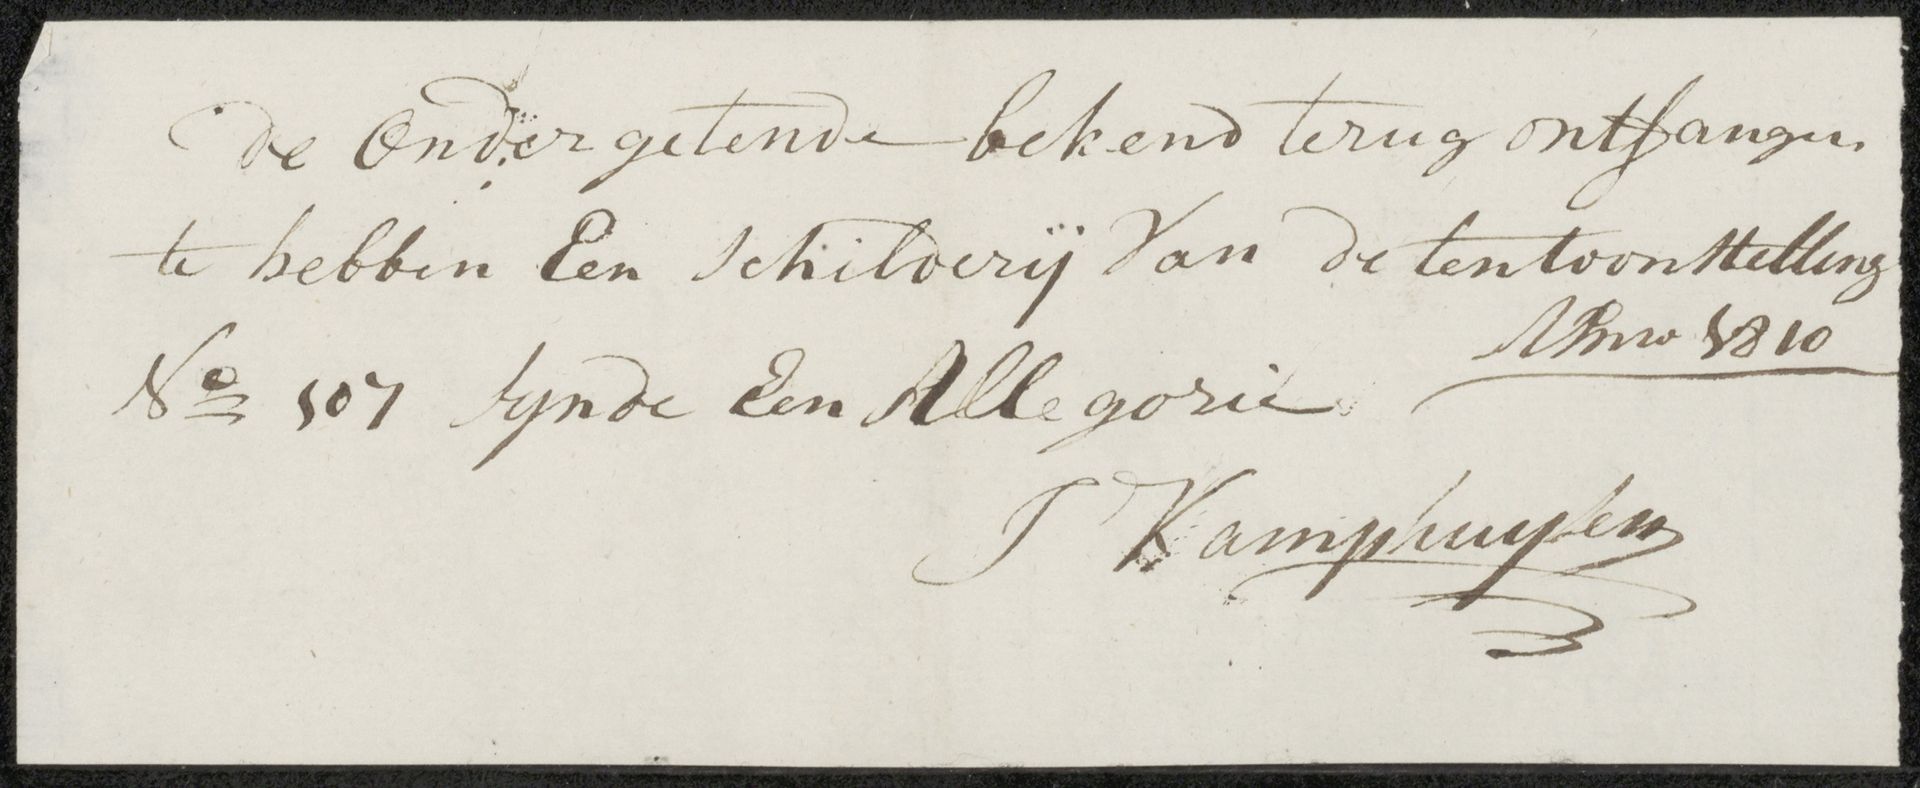 de Ondergetende bekend terug ontfangen
te hebben Een schilderij van de tentoonstelling
Anno 1810
No 107 synde Een Allegorie
J Kamphuysen